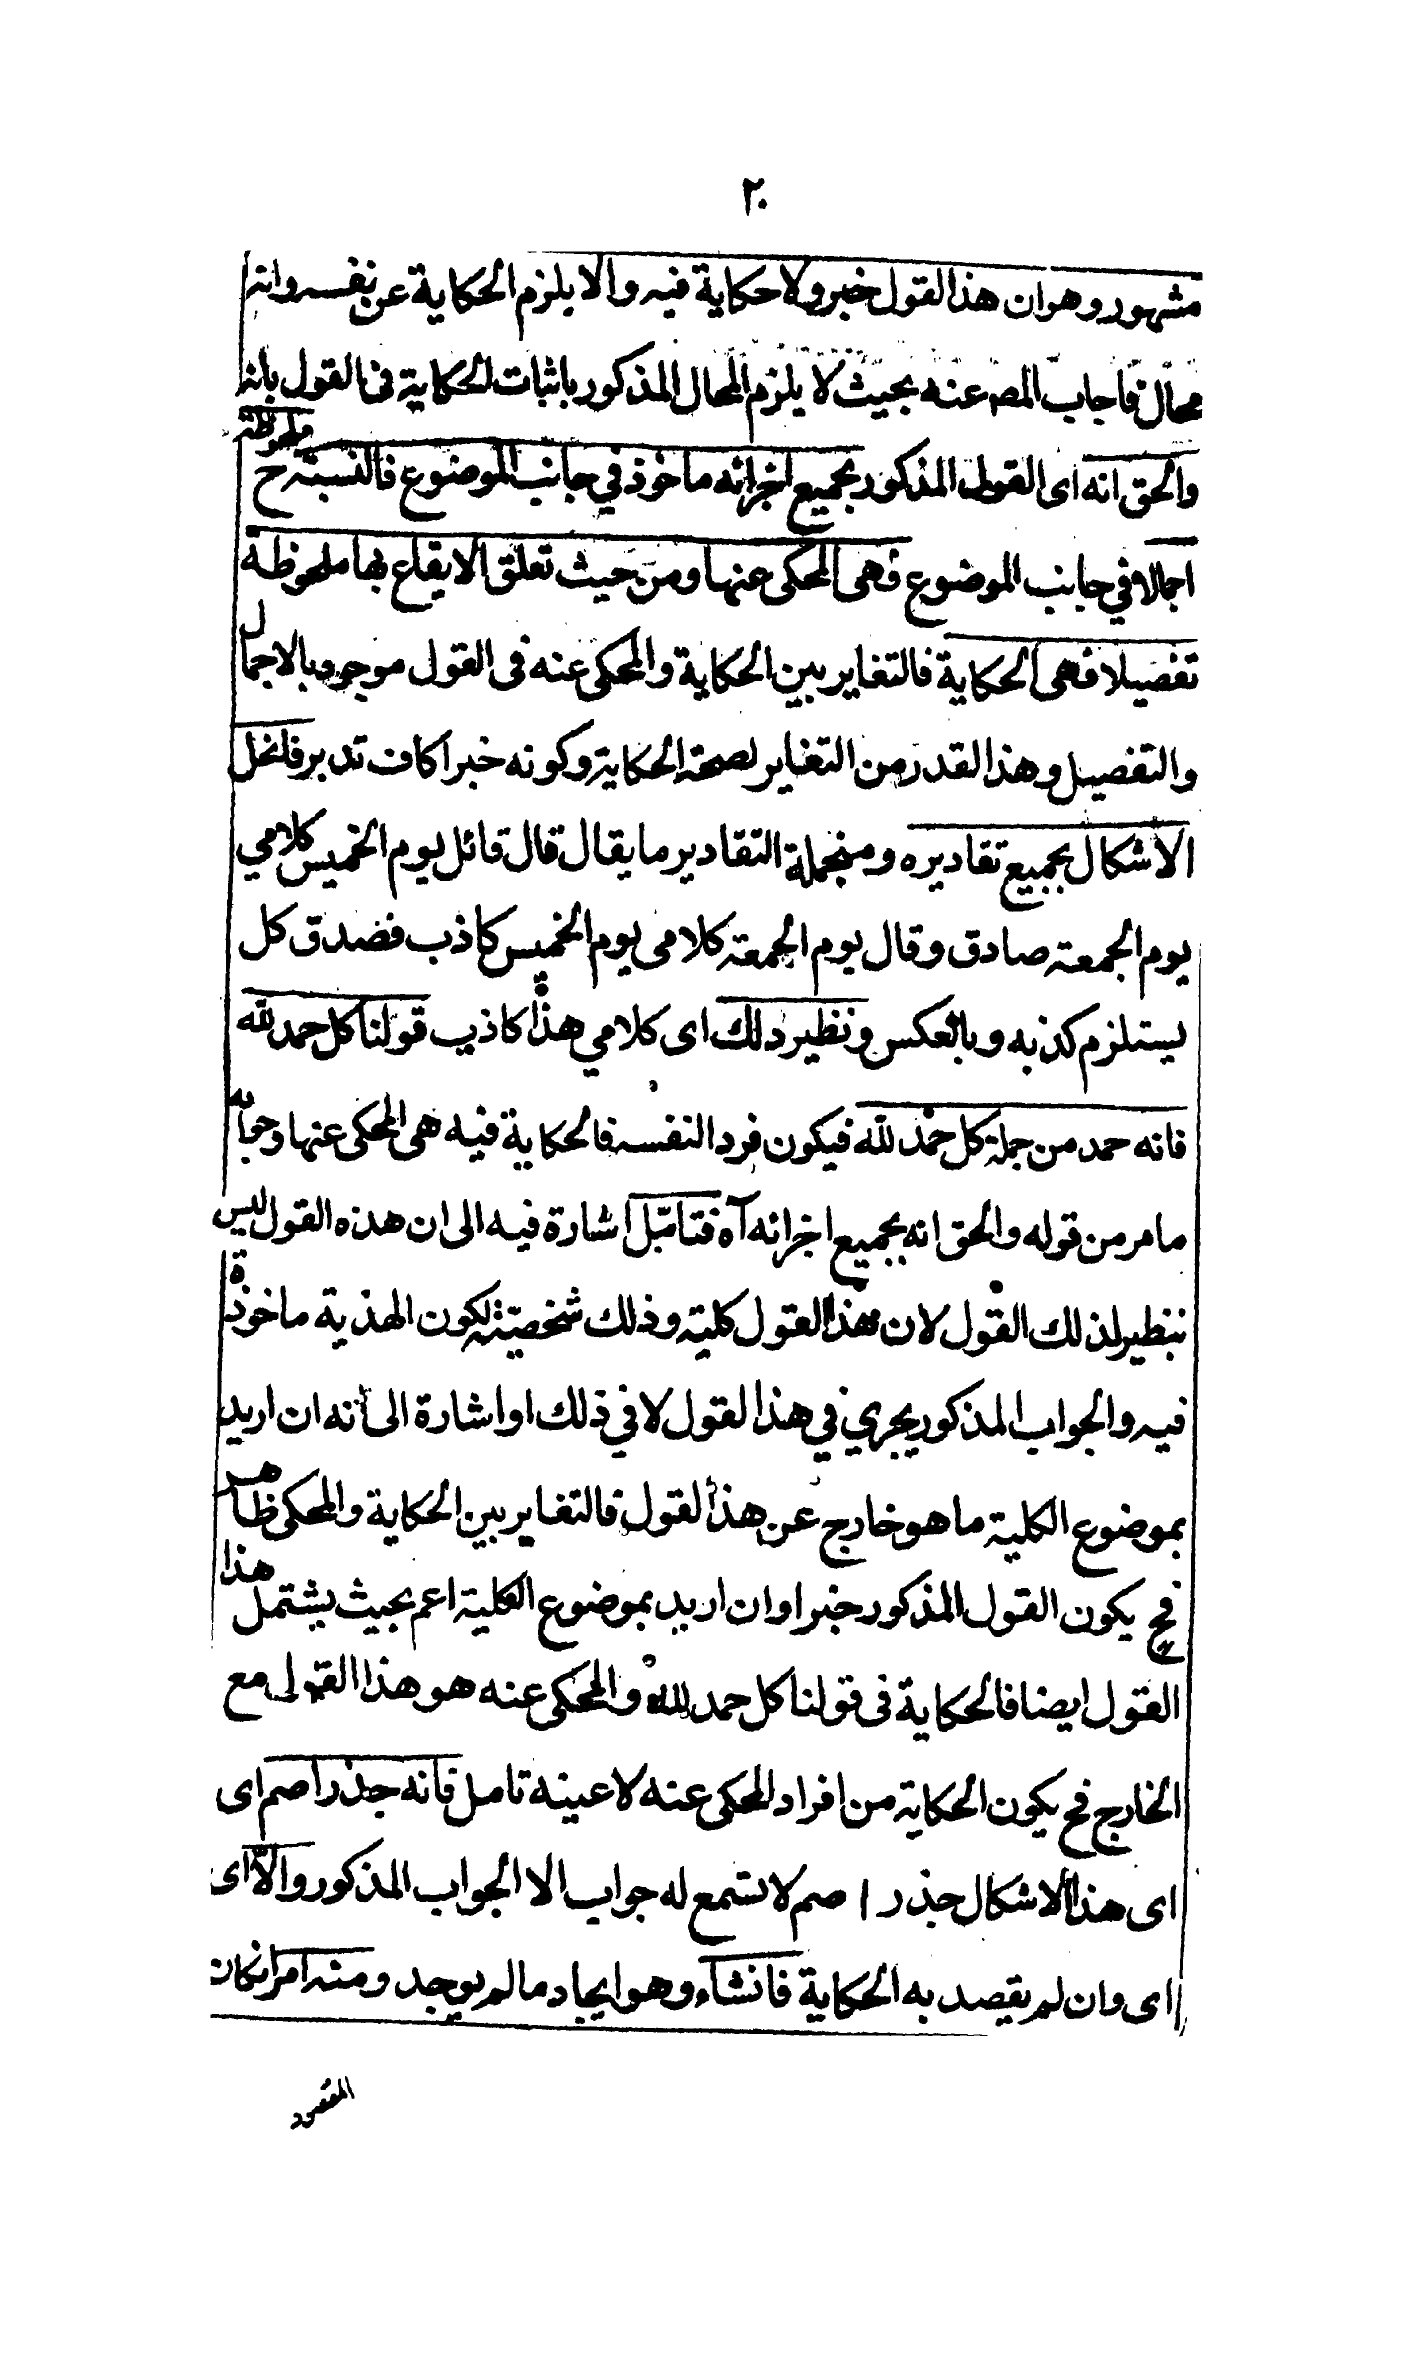 ٢٠
مشهور وهو ان هذا القول خبر ولا حكاية فيه والا يلزم الحكاية عن نفسه وانه
محال فاجاب المصـ عنه بحيث لا يلزم المحال المذكور باثبات الحكاية فى القول بانه
والحق انه اى القول المذكور بجميع اجزائه ماخوذ في جانب الموضوع فالنسبة ح ملحوظة
اجمالا في جانب الموضوع فهى المحكى عنها ومن حيث تعلق الايقاع بها ملحوظة
تفصيلا فهى الحكاية فالتغاير بين الحكاية والمحكى عنه فى القول موجود بالاجمال
والتفصيل وهذا القدر من التغاير لصحة الحكاية وكونه خبرا كاف تدبر فانحل
الاشكال بجميع تقاديره ومنجملة التقادير ما يقال قال قائل يوم الخميس كلامي
يوم الجمعة صادق وقال يوم الجمعة كلامى يوم الخميس كاذب فصدق كل
يستلزم كذبه وبالعكس ونظير ذلك اى كلامي هذا كاذب قولنا كل حمد لله
فانه حمد من جملة كل حمد لله فيكون فردا لنفسه فالحكاية فيه هى المحكى عنها وجوابه
ما مر من قوله والحق انه بجميع اجزائه آه فتامل اشارة فيه الى ان هذه القول ليس
بنظير لذلك القول لان هذا القول كلية وذلك شخصية لكون الهذية ماخوذة
فيه والجواب المذكور يجري في هذا القول لا في ذلك او اشارة الى انه ان اريد
بموضوع الكلية ما هو خارج عن هذا القول فالتغاير بين الحكاية والمحكى ظاهر
فح يكون القول المذكور خبرا وان اريد بموضوع الكلية اعم بحيث يشتمل هذا
القول ايضا فالحكاية فى قولنا كل حمد لله والمحكى عنه هو هذا القول مع
الخارج فح يكون الحكاية من افراد المحكى عنه لا عينه تامل فانه جذر اصم اى
اى هذا الاشكال جذر اصم لا تسمع له جواب الا الجواب المذكور والا اى
اى وان لم يقصد به الحكاية فانشاء وهو ايجاد ما لم يوجد ومنه امر امكان
المقصود